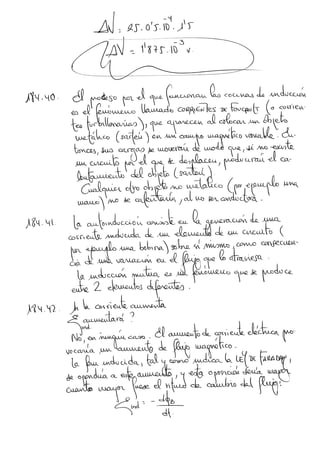 ΔV = 25.0'5.10⁻⁴.1'5
ΔV = 1'875.10⁻³ v.
184.40. El proceso por el que funcionan las cocinas de inducción
es el fenómeno llamado CORRIENTES DE FOUCAULT (o corrien-
tes turbillonarias), que aparecen al colocar un objeto
metálico (sartén) en un campo magnético variable. En-
tonces, sus cargas se moverán de modo que, si no existe
un circuito por el que se desplacen, producirán el ca-
lentamiento del objeto (sartén)
Cualquier otro objeto no metálico (por ejemplo una
mano) no se calentaría, al no ser conductora.
184.41. La autoinducción consiste en la generación de una
corriente inducida de un elemento de un circuito (
por ejemplo una bobina) sobre sí mismo, como consecuen-
cia de una variación en el flujo que lo atraviesa.
La inducción mutua es un fenómeno que se produce
entre 2 elementos diferentes.
184.42. Si la corriente aumenta
ε ind aumentará?
No, en ningún caso. El aumento de corriente eléctrica pro-
vocaría un aumento de flujo magnético.
La fem inducida, tal y como indica la LEY DE FARADAY,
se opondría a este aumento, y esta oposición sería mayor
cuanto mayor fuese el ritmo de cambio del flujo:
ε ind = - dΦB
dt